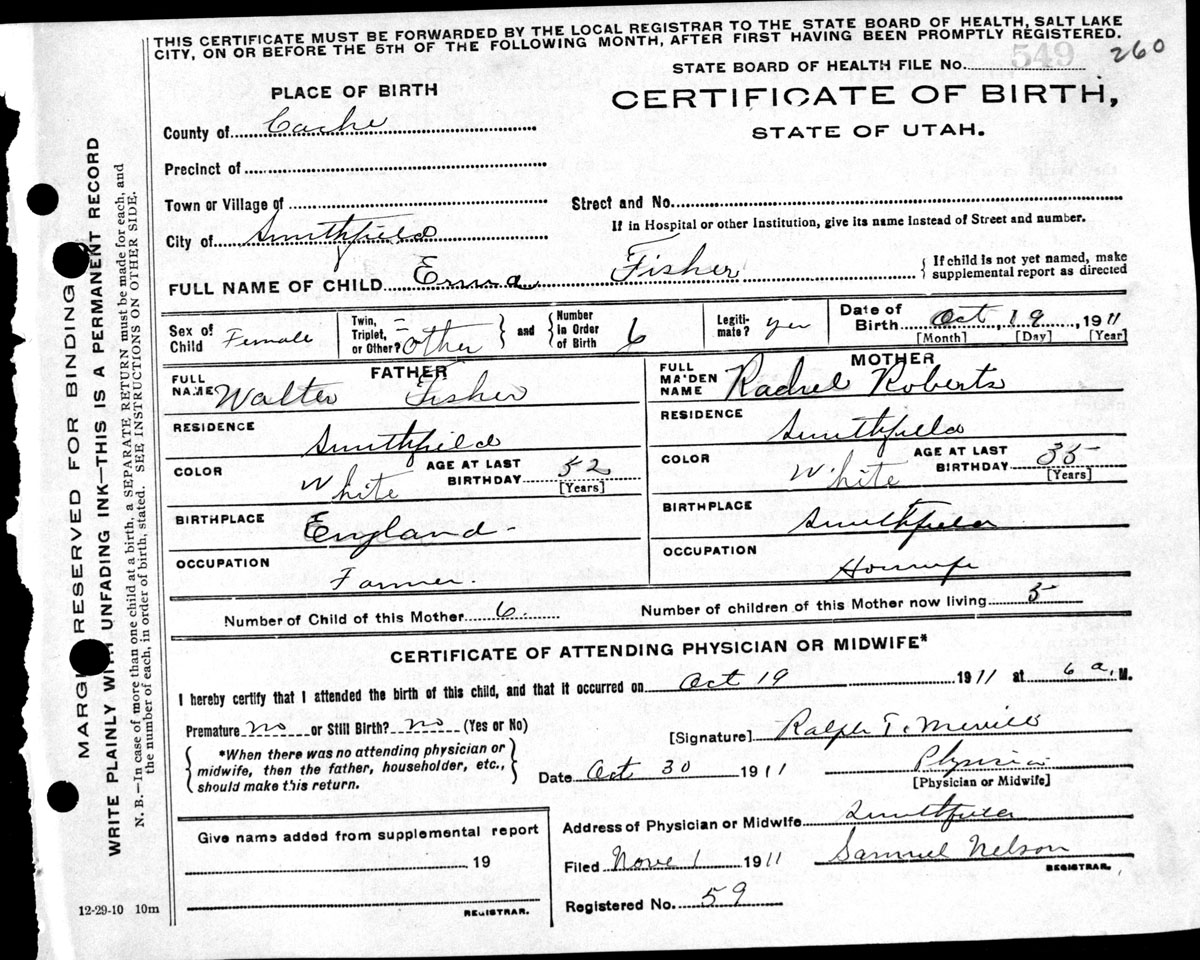 THIS CERTIFICATE MUST BE FORWARDED BY THE LOCAL REGISTRAR TO THE STATE BOARD OF HEALTH, SALT LAKE
CITY, ON OR BEFORE THE 5TH OF THE FOLLOWING MONTH, AFTER FIRST HAVING BEEN PROMPTLY REGISTERED.
549 260
STATE BOARD OF HEALTH FILE No.
PLACE OF BIRTH
CERTIFICATE OF BIRTH,
STATE OF UTAH.
County of Cache
Precinct of
Town or Village of
Street and No.
If in Hospital or other Institution, give its name instead of Street and number.
City of Smithfield
FULL NAME OF CHILD Erma Fisher
If child is not yet named, make
supplemental report as directed
Sex of Child Female
Twin, Triplet, or Other? other
and
Number in Order of Birth 6
Legiti-mate? yes
Date of Birth Oct, 19, 1911
[Month] [Day] [Year]
FATHER
FULL NAME Walter Fisher
RESIDENCE Smithfield
COLOR White
AGE AT LAST BIRTHDAY 52
[Years]
BIRTHPLACE England
OCCUPATION Farmer.
MOTHER
FULL MAIDEN NAME Rachel Roberts
RESIDENCE Smithfield
COLOR White
AGE AT LAST BIRTHDAY 35
[Years]
BIRTHPLACE Smithfield
OCCUPATION Housewife
Number of Child of this Mother 6.
Number of children of this Mother now living 5
CERTIFICATE OF ATTENDING PHYSICIAN OR MIDWIFE*
I hereby certify that I attended the birth of this child, and that it occurred on Oct 19 1911 at 6 a. M.
Premature no or Still Birth? no (Yes or No)
*When there was no attending physician or
midwife, then the father, householder, etc.,
should make this return.
[Signature] Ralph T. Merrill
Date Oct 30 1911
Physician
[Physician or Midwife]
Give name added from supplemental report
19
REGISTRAR.
Address of Physician or Midwife Smithfield
Filed Nove 1 1911 Samuel Nelson
REGISTRAR.
Registered No. 59
12-29-10 10m
MARGIN RESERVED FOR BINDING
WRITE PLAINLY WITH UNFADING INK—THIS IS A PERMANENT RECORD
N. B.—In case of more than one child at a birth, a SEPARATE RETURN must be made for each, and
the number of each, in order of birth, stated. SEE INSTRUCTIONS ON OTHER SIDE.